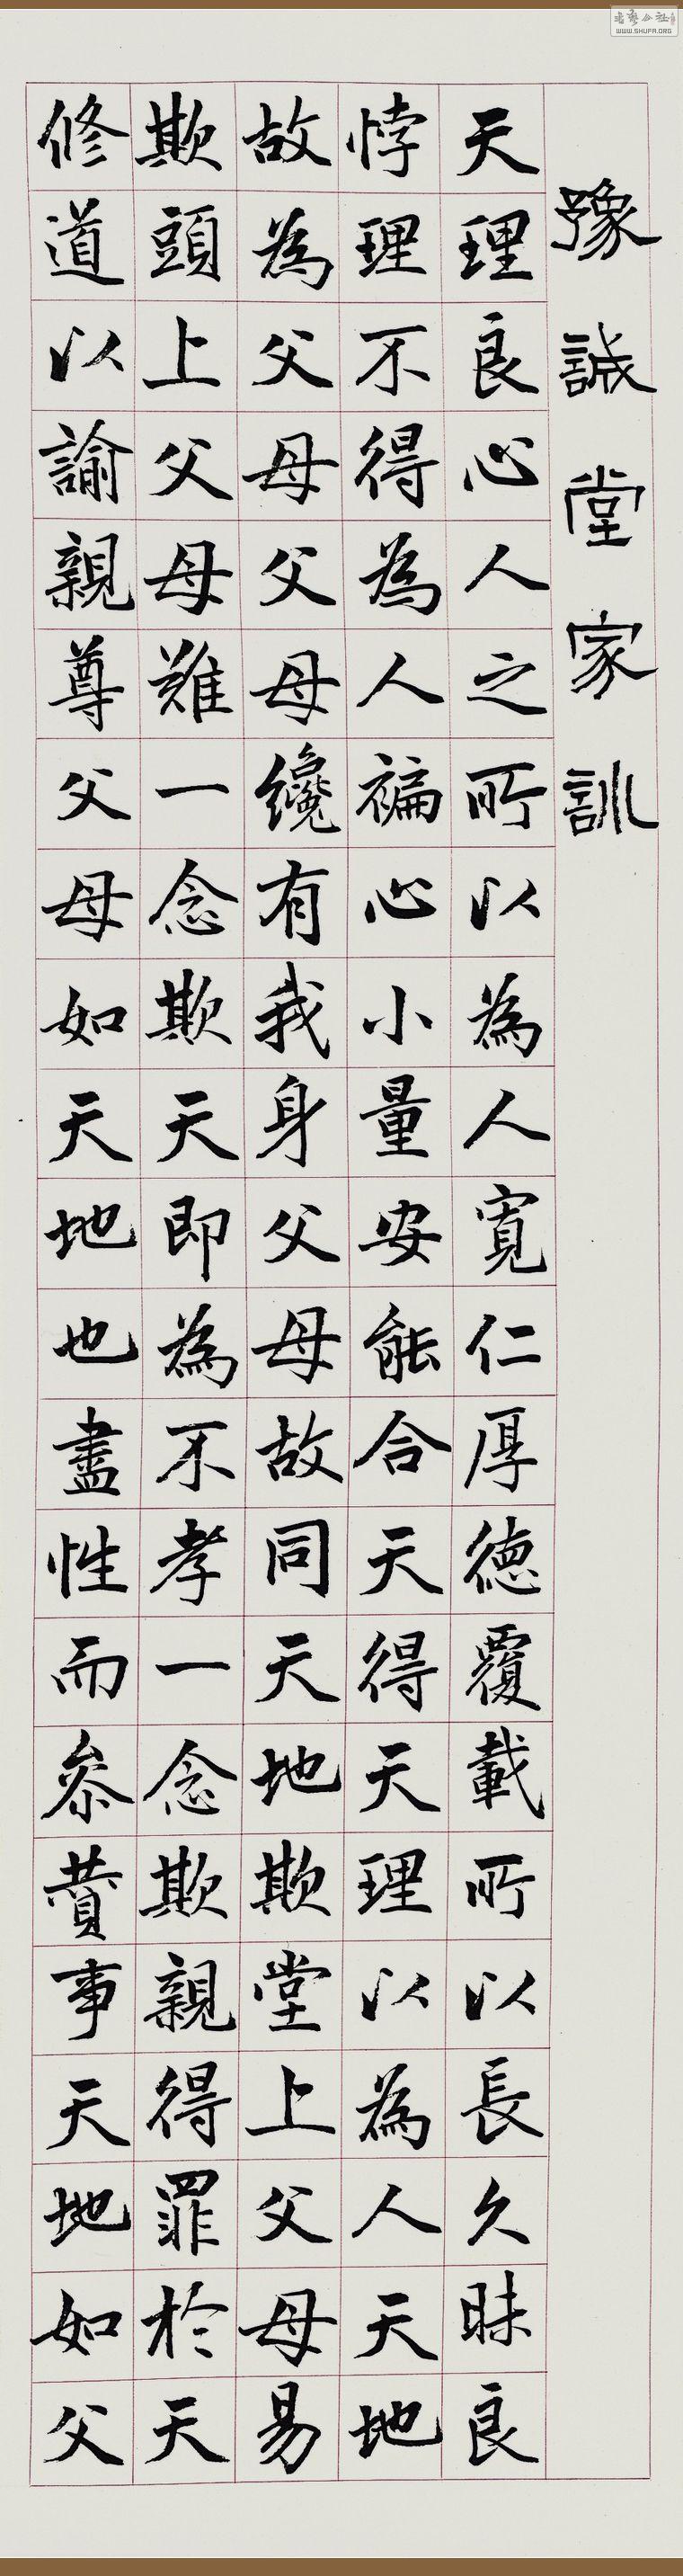 豫誠堂家訓
天理良心人之所以為人寬仁厚德覆載所以長久昧良
悖理不得為人褊心小量安能合天得天理以為人天地
故為父母父母纔有我身父母故同天地欺堂上父母易
欺頭上父母難一念欺天即為不孝一念欺親得罪於天
修道以諭親尊父母如天地也盡性而參贊事天地如父
WWW.SHUFA.ORG